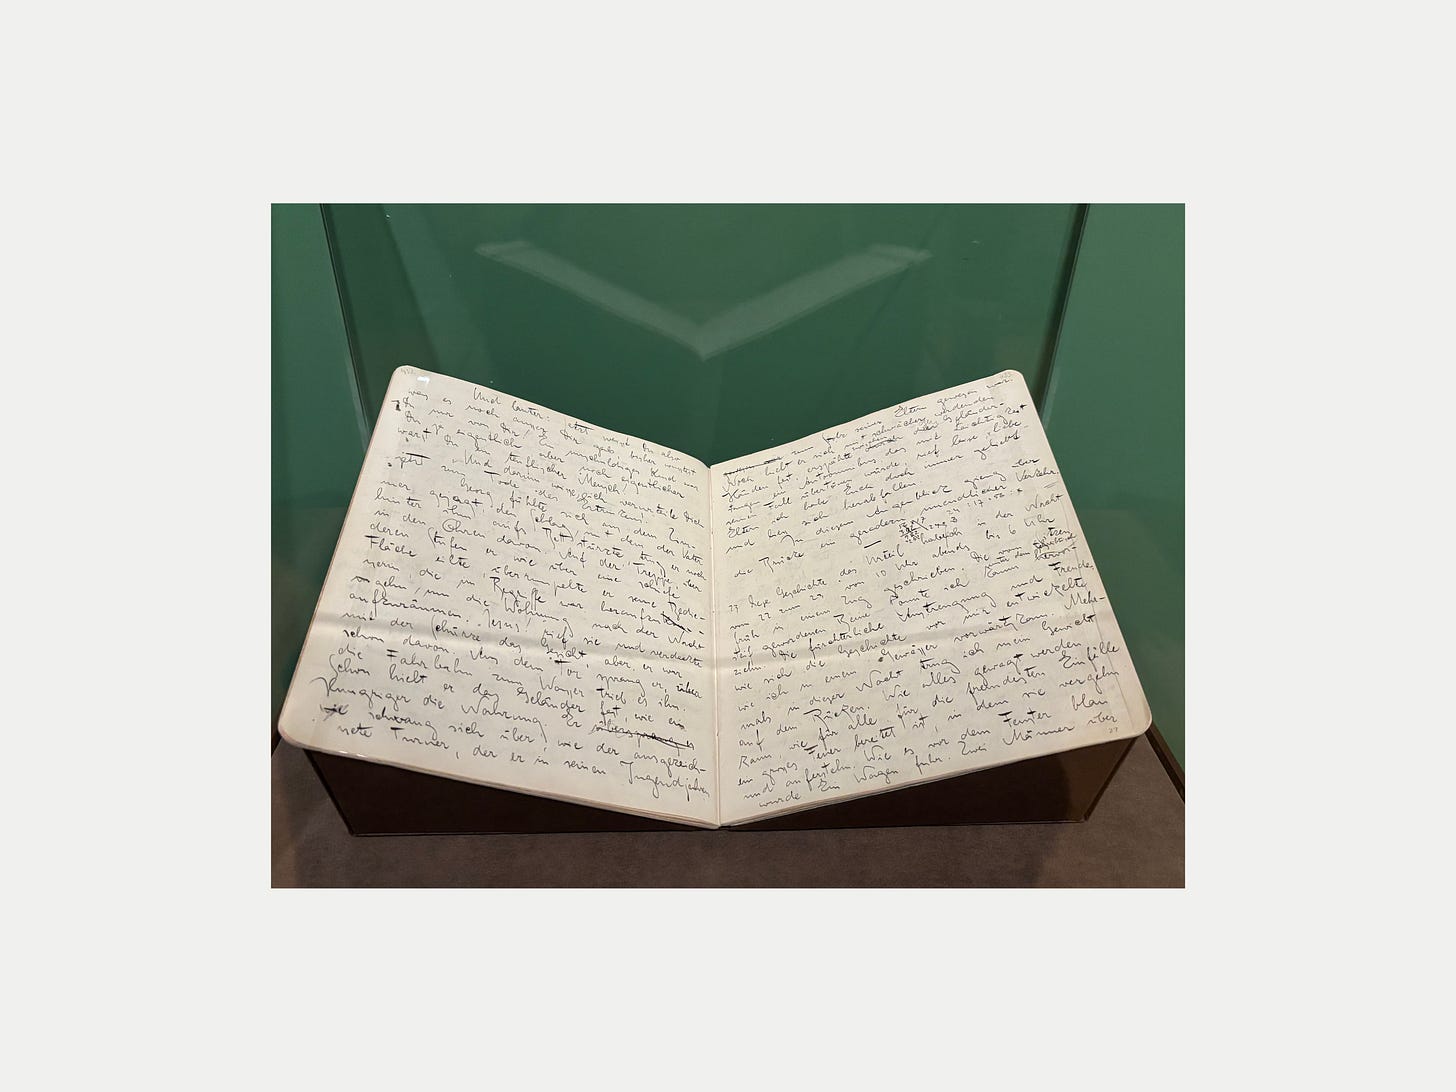 Und lauter: Jetzt weist Du also
was es noch ausser Dir gab, bisher wusstest
Du nur von Dir! Ein unschuldiges Kind war
Du ja eigentlich aber noch eigentlicher
warst Du ein teuflischer Mensch!
Und darum wisse: Ich verurteile Dich
jetzt zum Tode des Ertrinkens!
Georg fühlte sich aus dem Zim-
mer gejagt, den Schlag, mit dem der Vater
hinter ihm aufs Bett stürzte, trug er noch
in den Ohren davon. Auf der Treppe, über
deren Stufen er wie über eine schiefe
Fläche eilte, überrumpelte er seine Bedie-
nerin, die im Begriffe war heraufzu
gehn, um die Wohnung nach der Nacht
aufzuräumen. Jesus! rief sie und verdeckte
mit der Schürze das Gesicht, aber er war
schon davon. Aus dem Tor sprang er, über
die Fahrbahn zum Wasser trieb es ihn.
Schon hielt er das Geländer fest, wie ein
Hungriger die Nahrung. Er übersprang es
schwang sich über, wie der ausgezeich-
nete Turner, der er in seinen Jugendjahren
zum Stolz seiner Eltern gewesen war.
Noch hielt er sich mit schwächer werdenden
Händen fest, erspähte zwischen den Geländer-
stangen ein Autoomnibus, das mit Leichtigkeit
seinen Fall übertönen würde, rief leise: Liebe
Eltern ich habe Euch doch immer geliebt
und liess sich herabfallen
In diesem Augenblick gieng über
die Brücke ein geradezu unendlicher Verkehr.
23 Diese Geschichte das Urteil habe ich in der Nacht
vom 22 zum 23 von 10 Uhr abends bis 6 Uhr
früh in einem Zug geschrieben. Die vom Sitzen
steif gewordenen Beine konnte ich kaum unter dem Schreibtisch hervor-
ziehn. Die fürchterliche Anstrengung und Freude,
wie sich die Geschichte vor mir entwickelte
wie ich in einem Gewässer vorwärtskam. Mehr-
mals in dieser Nacht trug ich mein Gewicht
auf dem Rücken. Wie alles gewagt werden
kann, wie für alle, für die fremdesten Einfälle
ein grosses Feuer bereitet ist, in dem sie vergehn
und auferstehn. Wie es vor dem Fenster blau
wurde. Ein Wagen fuhr. Zwei Männer über
27